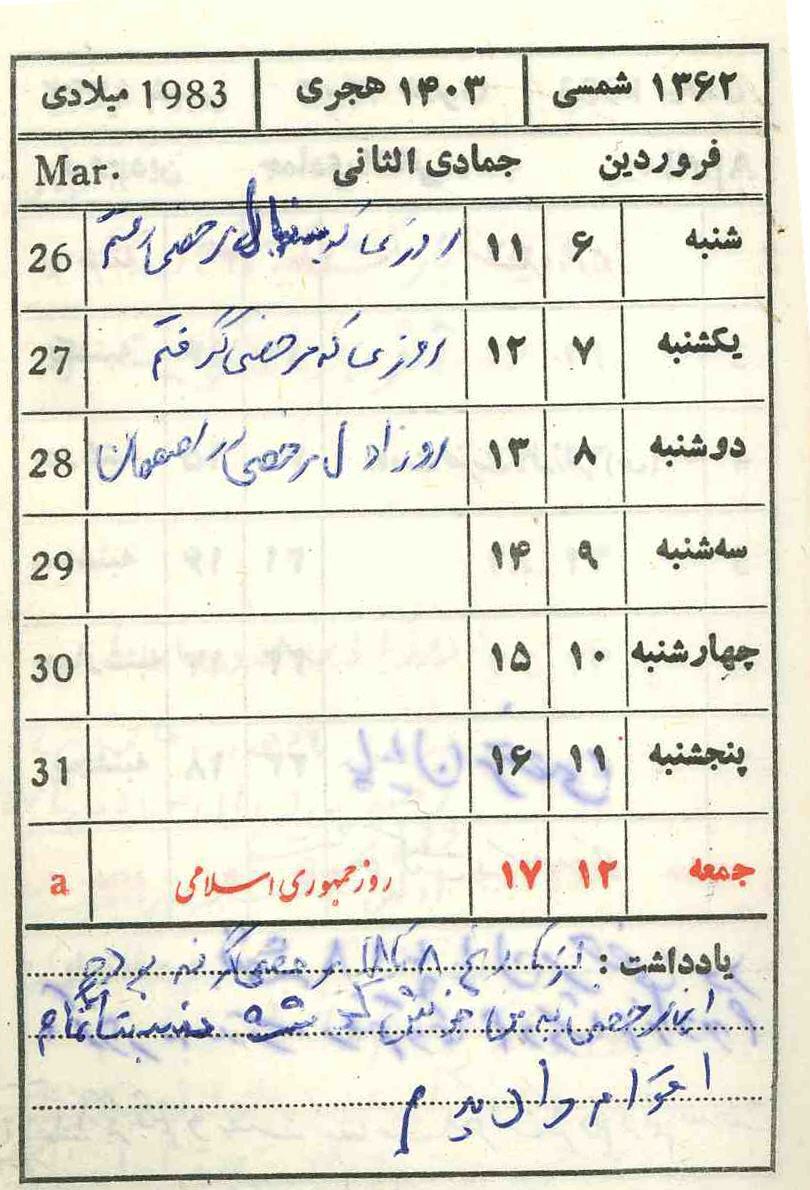 ۱۳۶۲ شمسی ۱۴۰۳ هجری 1983 میلادی
فروردین جمادی الثانی Mar.
شنبه ۶ ۱۱ روزی که بدنبال مرخصی رفتم 26
یکشنبه ۷ ۱۲ روزی که مرخصی گرفتم 27
دوشنبه ۸ ۱۳ روز اول مرخصی در اصفهان 28
سه‌شنبه ۹ ۱۴ 29
چهارشنبه ۱۰ ۱۵ 30
پنجشنبه ۱۱ ۱۶ 31
جمعه ۱۲ ۱۷ روز جمهوری اسلامی a
یادداشت : از تاریخ ۸ تا ۱۸ مرخصی گرفته بودم
این مرخصی به من خوش گذشت تمام
اقوام را دیدم